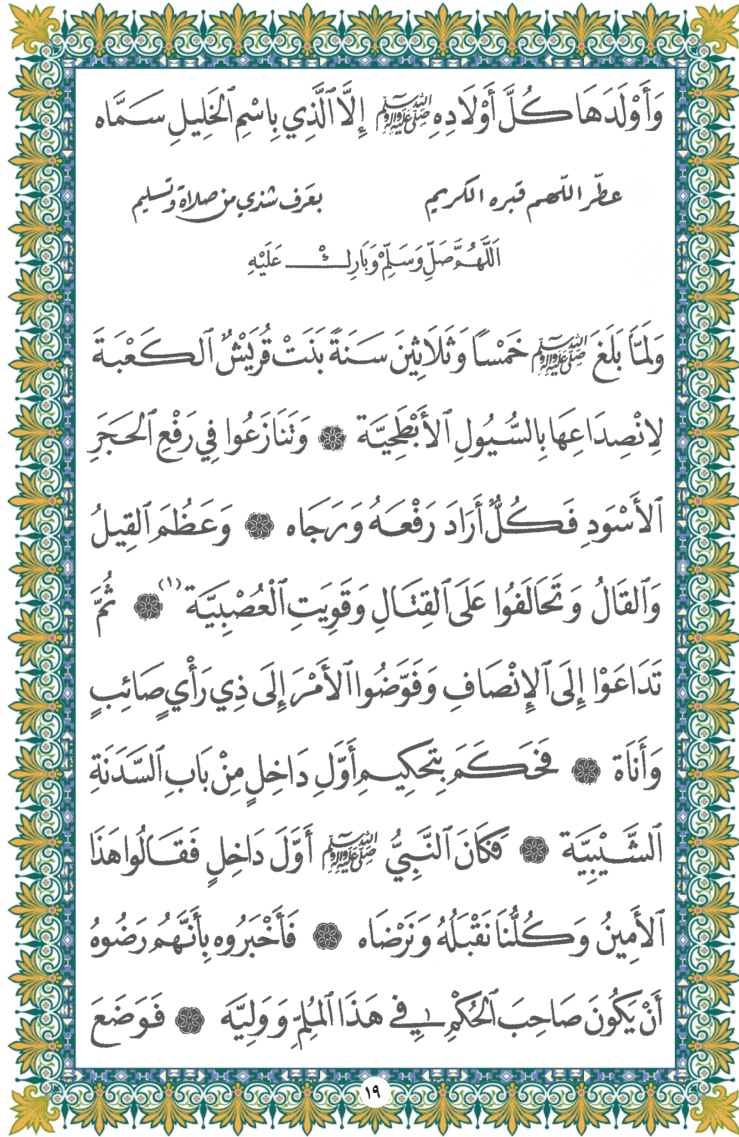 وَأَوْلَدَهَا كُلَّ أَوْلَادِهِ ﷺ إِلَّا الَّذِي بِاسْمِ الْخَلِيلِ سَمَّاه
عطّر اللّهم قبره الكريم بعَرف شذي من صلاة وتسليم
اَللَّهُمَّ صَلِّ وَسَلِّمْ وَبَارِكْ عَلَيْهِ
وَلَمَّا بَلَغَ ﷺ خَمْساً وَثَلَاثِينَ سَنَةً بَنَتْ قُرَيْشٌ الكَعْبَةَ
لِانْصِدَاعِهَا بِالسُّيُولِ الأَبْطَحِيَّة ۞ وَتَنَازَعُوا فِي رَفْعِ الحَجَرِ
الأَسْوَدِ فَكُلٌّ أَرَادَ رَفْعَهُ وَرَجَاه ۞ وَعَظُمَ القِيلُ
وَالقَالُ وَتَحَالَفُوا عَلَى القِتَالِ وَقَوِيَتِ الْعُصْبِيَّة (١) ۞ ثُمَّ
تَدَاعَوْا إِلَى الإِنْصَافِ وَفَوَّضُوا الأَمْرَ إِلَى ذِي رَأْيٍ صَائِبٍ
وَأَنَاة ۞ فَحَكَمَ بِتَحْكِيمِ أَوَّلِ دَاخِلٍ مِنْ بَابِ السَّدَنَةِ
الشَّيْبِيَّة ۞ فَكَانَ النَّبِيُّ ﷺ أَوَّلَ دَاخِلٍ فَقَالُوا هَذَا
الأَمِينُ وَكُلُّنَا نَقْبَلُهُ وَنَرْضَاه ۞ فَأَخْبَرُوه بِأَنَّهُم رَضُوهُ
أَنْ يَكُونَ صَاحِبَ الحُكْمِ فِي هَذَا المُلِمِّ وَوَلِيَّه ۞ فَوَضَعَ
١٩